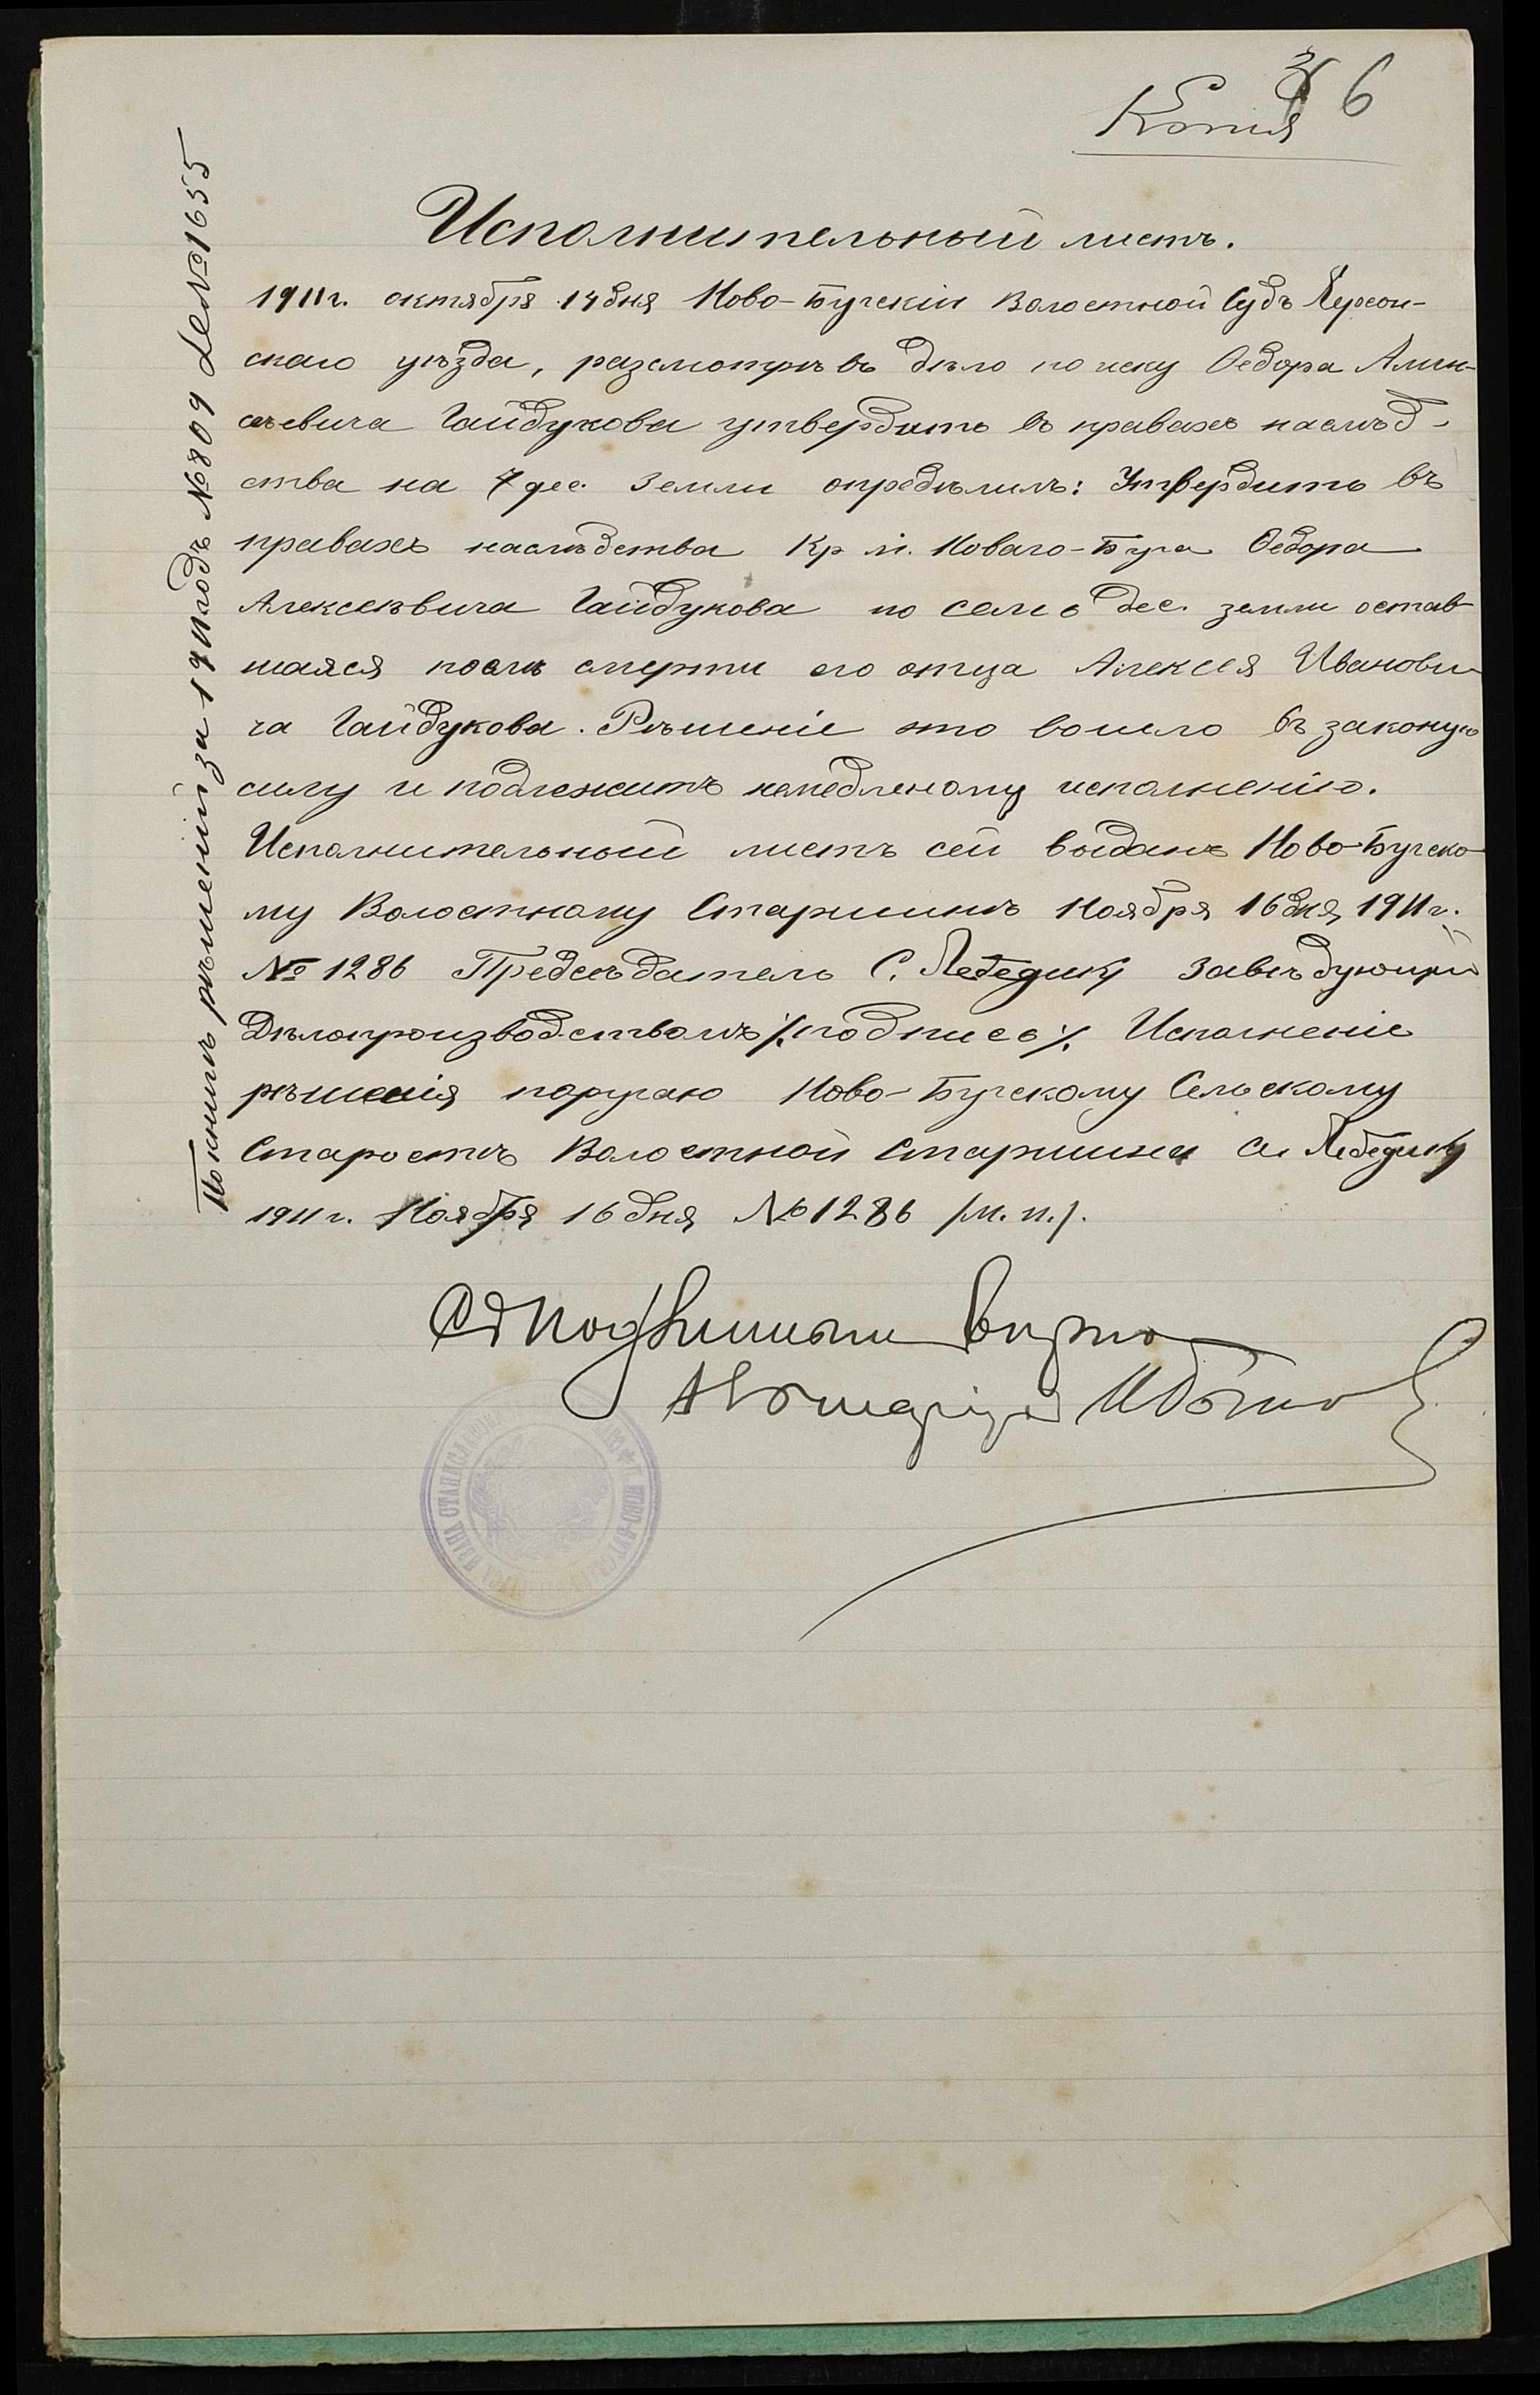 36
Копія
Исполнительный листъ.
1911 г. октября 14 дня Ново-Бугскій Волостной Судъ Херсон-
скаго уѣзда, разсмотрѣвъ дѣло по иску Ѳедора Алек-
сѣевича Гайдукова утвердить въ правахъ наслѣд-
ства на 7 дес. земли опредѣлилъ: Утвердить въ
правахъ наслѣдства Кр м. Новаго-Буга Ѳедора
Алексеѣвича Гайдукова по семь дес. земли остав-
шаяся послѣ смерти его отца Алексея Иванови-
ча Гайдукова. Рѣшеніе это вошло въ законую
силу и подлежитъ немедленому исполненію.
Исполнительный листъ сей выданъ Ново-Бугско-
му Волостному Старшинѣ Ноября 16 дня 1911 г.
№ 1286 Предсѣдатель С. Лебедикъ Завѣдующій
Дѣлопроизводствомъ /:подпись:/. Исполненіе
рѣшенія поручаю Ново-Бугскому Сельскому
Старостѣ Волостной Старшина Лебедикъ
1911 г. Ноября 16 дня № 1286 /м. п./.
Съ подлиннымъ вѣрно
По книгѣ рѣшеній за 1911 годъ № 809 Дѣл № 1655